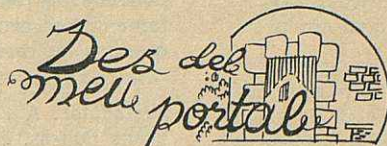 Des del
meu portal